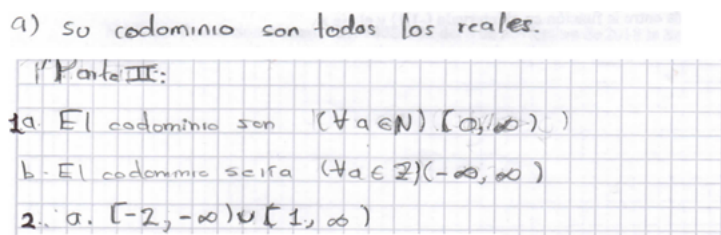 a) su codominio son todos los reales.
Parte II:
1a. El codominio son (∀a∈N) [0,∞) )
b. El codominio seria (∀a∈Z)(-∞,∞)
2. a. [-2,-∞)∪[1,∞)